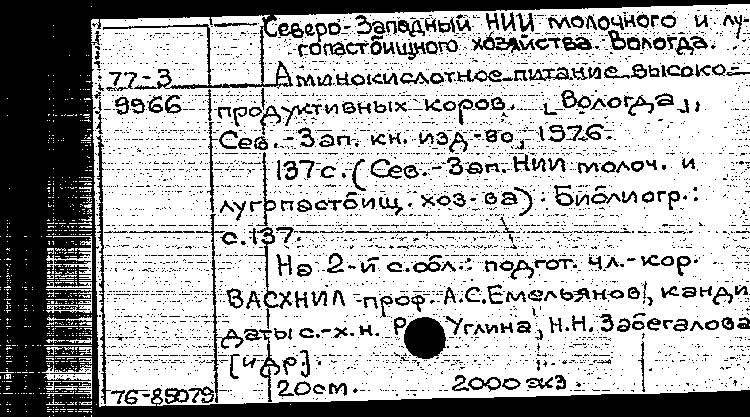 Северо-Западный НИИ молочного и лу-
гопастбищного хозяйства. Вологда.
77-3 Аминокислотное питание высоко=
9966 продуктивных коров. [Вологда],
Сев.-Зап. кн. изд-во, 1976.
137 с. (Сев.-Зап. НИИ молоч. и
лугопастбищ. хоз-ва). Библиогр.:
с.137.
На 2-й с.обл.: подгот. чл.-кор.
ВАСХНИЛ проф. А.С.Емельянов, канди
даты с.-х.н. Р Углина, Н.Н.Забегалова
[и др].
76-85079 20см. 2000 экз.